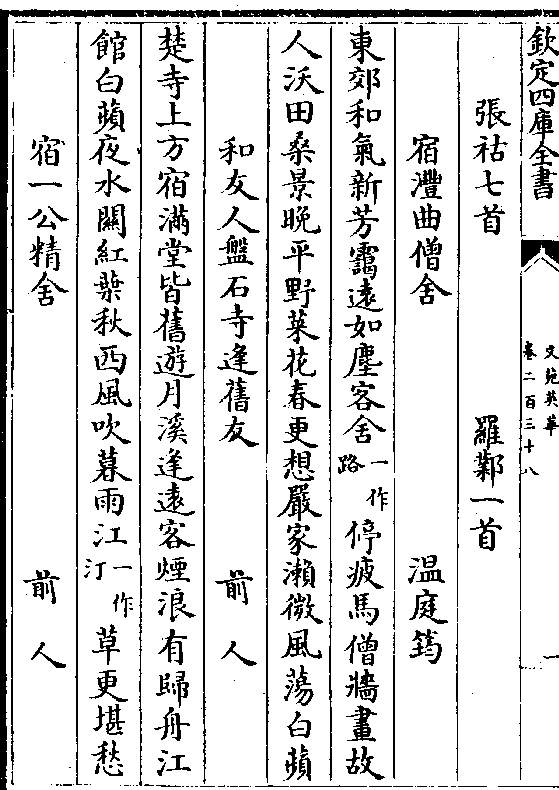 欽定四庫全書
文苑英華
卷二百三十八
一
張祜七首 羅鄴一首
宿灃曲僧舍 温庭筠
東郊和氣新芳靄遠如塵客舍一作路停疲馬僧牆畫故
人沃田桑景晩平野菜花春更想嚴家瀨微風蕩白蘋
和友人盤石寺逢舊友 前人
楚寺上方宿滿堂皆舊遊月溪逢遠客煙浪有歸舟江
館白蘋夜水關紅葉秋西風吹暮雨江一作汀草更堪愁
宿一公精舍 前人